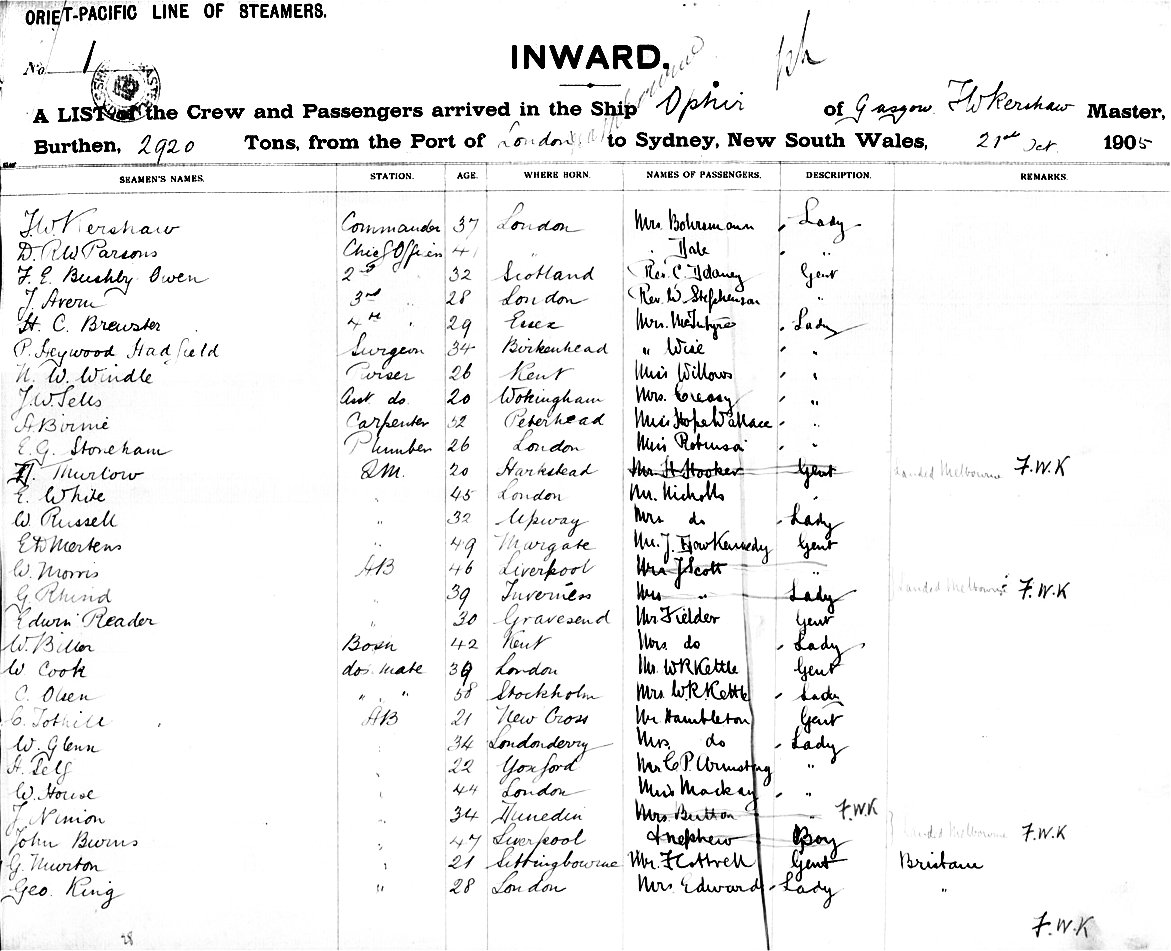 ORIET-PACIFIC LINE OF STEAMERS.
No. 1
INWARD.
A LIST of the Crew and Passengers arrived in the Ship Ophir of Gasgow F W Kershaw Master,
Burthen, 2920 Tons, from the Port of London to Sydney, New South Wales, 21st Oct 1905
SEAMEN'S NAMES. STATION. AGE. WHERE BORN. NAMES OF PASSENGERS. DESCRIPTION. REMARKS.
F.W. Kershaw Commander 37 London Mrs. Bohrsmann Lady
D.R.W Parsons Chief Officer 41 " " Hale "
F. E. Bushby Owen 2nd " 32 Scotland Rev. C. Delaney Gent
J Avern 3rd " 28 London Rev. W. Stephenson "
H. C. Brewster 4th " 29 Essex Mrs. McIntyre Lady
P. Heywood Hadfield Surgeon 34 Birkenhead " Wise "
N. W. Windle Purser 26 Kent Miss Willows "
J.W Sells Asst do. 20 Wokingham Mrs. Creasy "
A Birnie Carpenter 32 Peterhead Miss Hope Wallace "
E. G. Stoneham Plumber 26 London Miss Robinson "
Murlow Q.M. 20 Harkstead Mr. H Hooker Gent Landed Melbourne F.W.K
E. White " 45 London Mr. Nicholls "
W Russell " 32 Upway Mrs do Lady
E D Mertens " 49 Margate Mr. J. How Kennedy Gent
W. Morris AB 46 Liverpool Mrs J Scott "
G. Rhind " 39 Inverness Mrs " Lady Landed Melbourne F.W.K
Edwin Reader " 30 Gravesend Mr Fielder Gent
W. Biller Bosn 42 Kent Mrs. do Lady
W Cook dos. mate 39 London Mr. W R Kettle Gent
C. Olsen " " 58 Stockholm Mrs. W R. Kettle Lady
C. Tothill AB 21 New Cross Mr Hambleton Gent
W. Glenn " 34 Londonderry Mrs. do Lady
H. Self " 22 Yoxford Mr C P Armstrong "
W. House " 44 London Miss Mackay "
J. Ninion " 34 Dunedin Mrs Button " F.W.K
John Burns " 47 Liverpool & nephew Boy Landed Melbourne F.W.K
G. Murton " 21 Sittingbourne Mr. F Cottrell Gent Brisbane
Geo. King " 28 London Mrs Edward Lady "
F.W.K
28